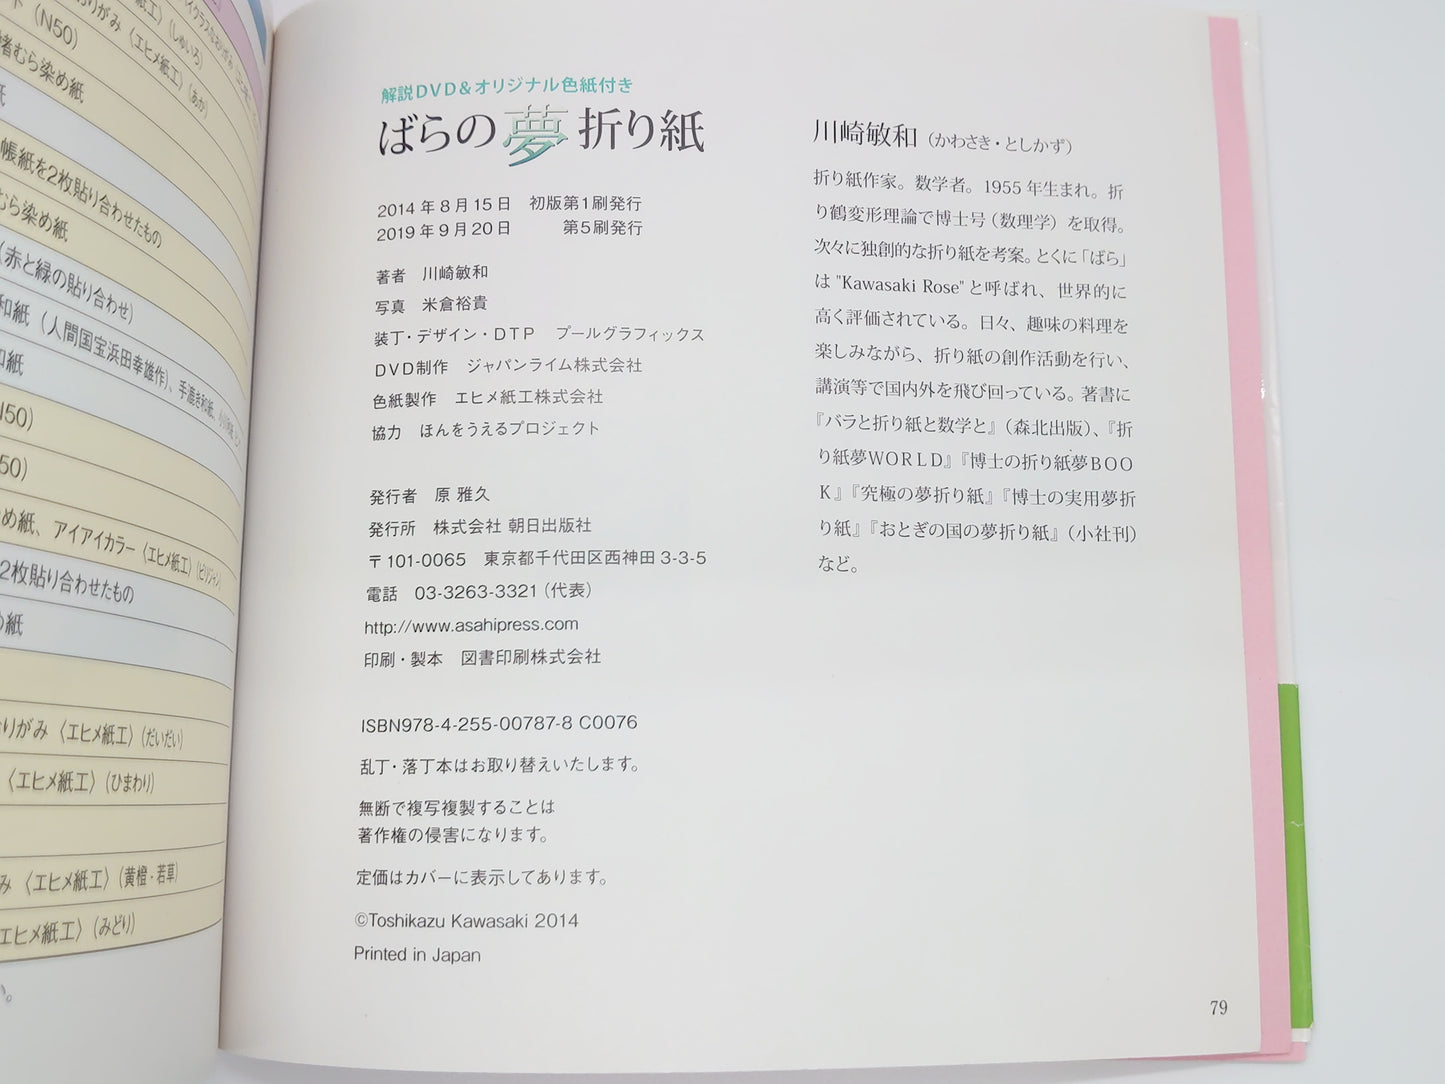 紙工〉(しゅいろ)
ト(N50)
りがみ〈エヒメ紙工〉(あか)
者むら染め紙
紙
帳紙を2枚貼り合わせたもの
むら染め紙
(赤と緑の貼り合わせ)
和紙(人間国宝浜田幸雄作)、手漉き和紙、
和紙
N50)
50)
め紙、アイアイカラー〈エヒメ紙工〉(ビリジャン)
2枚貼り合わせたもの
め紙
りがみ〈エヒメ紙工〉(だいだい)
〈エヒメ紙工〉(ひまわり)
み〈エヒメ紙工〉(黄橙・若草)
エヒメ紙工〉(みどり)
い。
解説DVD&オリジナル色紙付き
ばらの夢折り紙
2014年8月15日 初版第1刷発行
2019年9月20日 第5刷発行
著者 川崎敏和
写真 米倉裕貴
装丁・デザイン・DTP プールグラフィックス
DVD制作 ジャパンライム株式会社
色紙製作 エヒメ紙工株式会社
協力 ほんをうえるプロジェクト
発行者 原 雅久
発行所 株式会社 朝日出版社
〒101-0065 東京都千代田区西神田3-3-5
電話 03-3263-3321(代表)
http://www.asahipress.com
印刷・製本 図書印刷株式会社
ISBN978-4-255-00787-8 C0076
乱丁・落丁本はお取り替えいたします。
無断で複写複製することは
著作権の侵害になります。
定価はカバーに表示してあります。
©Toshikazu Kawasaki 2014
Printed in Japan
川崎敏和(かわさき・としかず)
折り紙作家。数学者。1955年生まれ。折
り鶴変形理論で博士号(数理学)を取得。
次々に独創的な折り紙を考案。とくに「ばら」
は"Kawasaki Rose"と呼ばれ、世界的に
高く評価されている。日々、趣味の料理を
楽しみながら、折り紙の創作活動を行い、
講演等で国内外を飛び回っている。著書に
『バラと折り紙と数学と』(森北出版)、『折
り紙夢WORLD』『博士の折り紙夢BOO
K』『究極の夢折り紙』『博士の実用夢折
り紙』『おとぎの国の夢折り紙』(小社刊)
など。
79